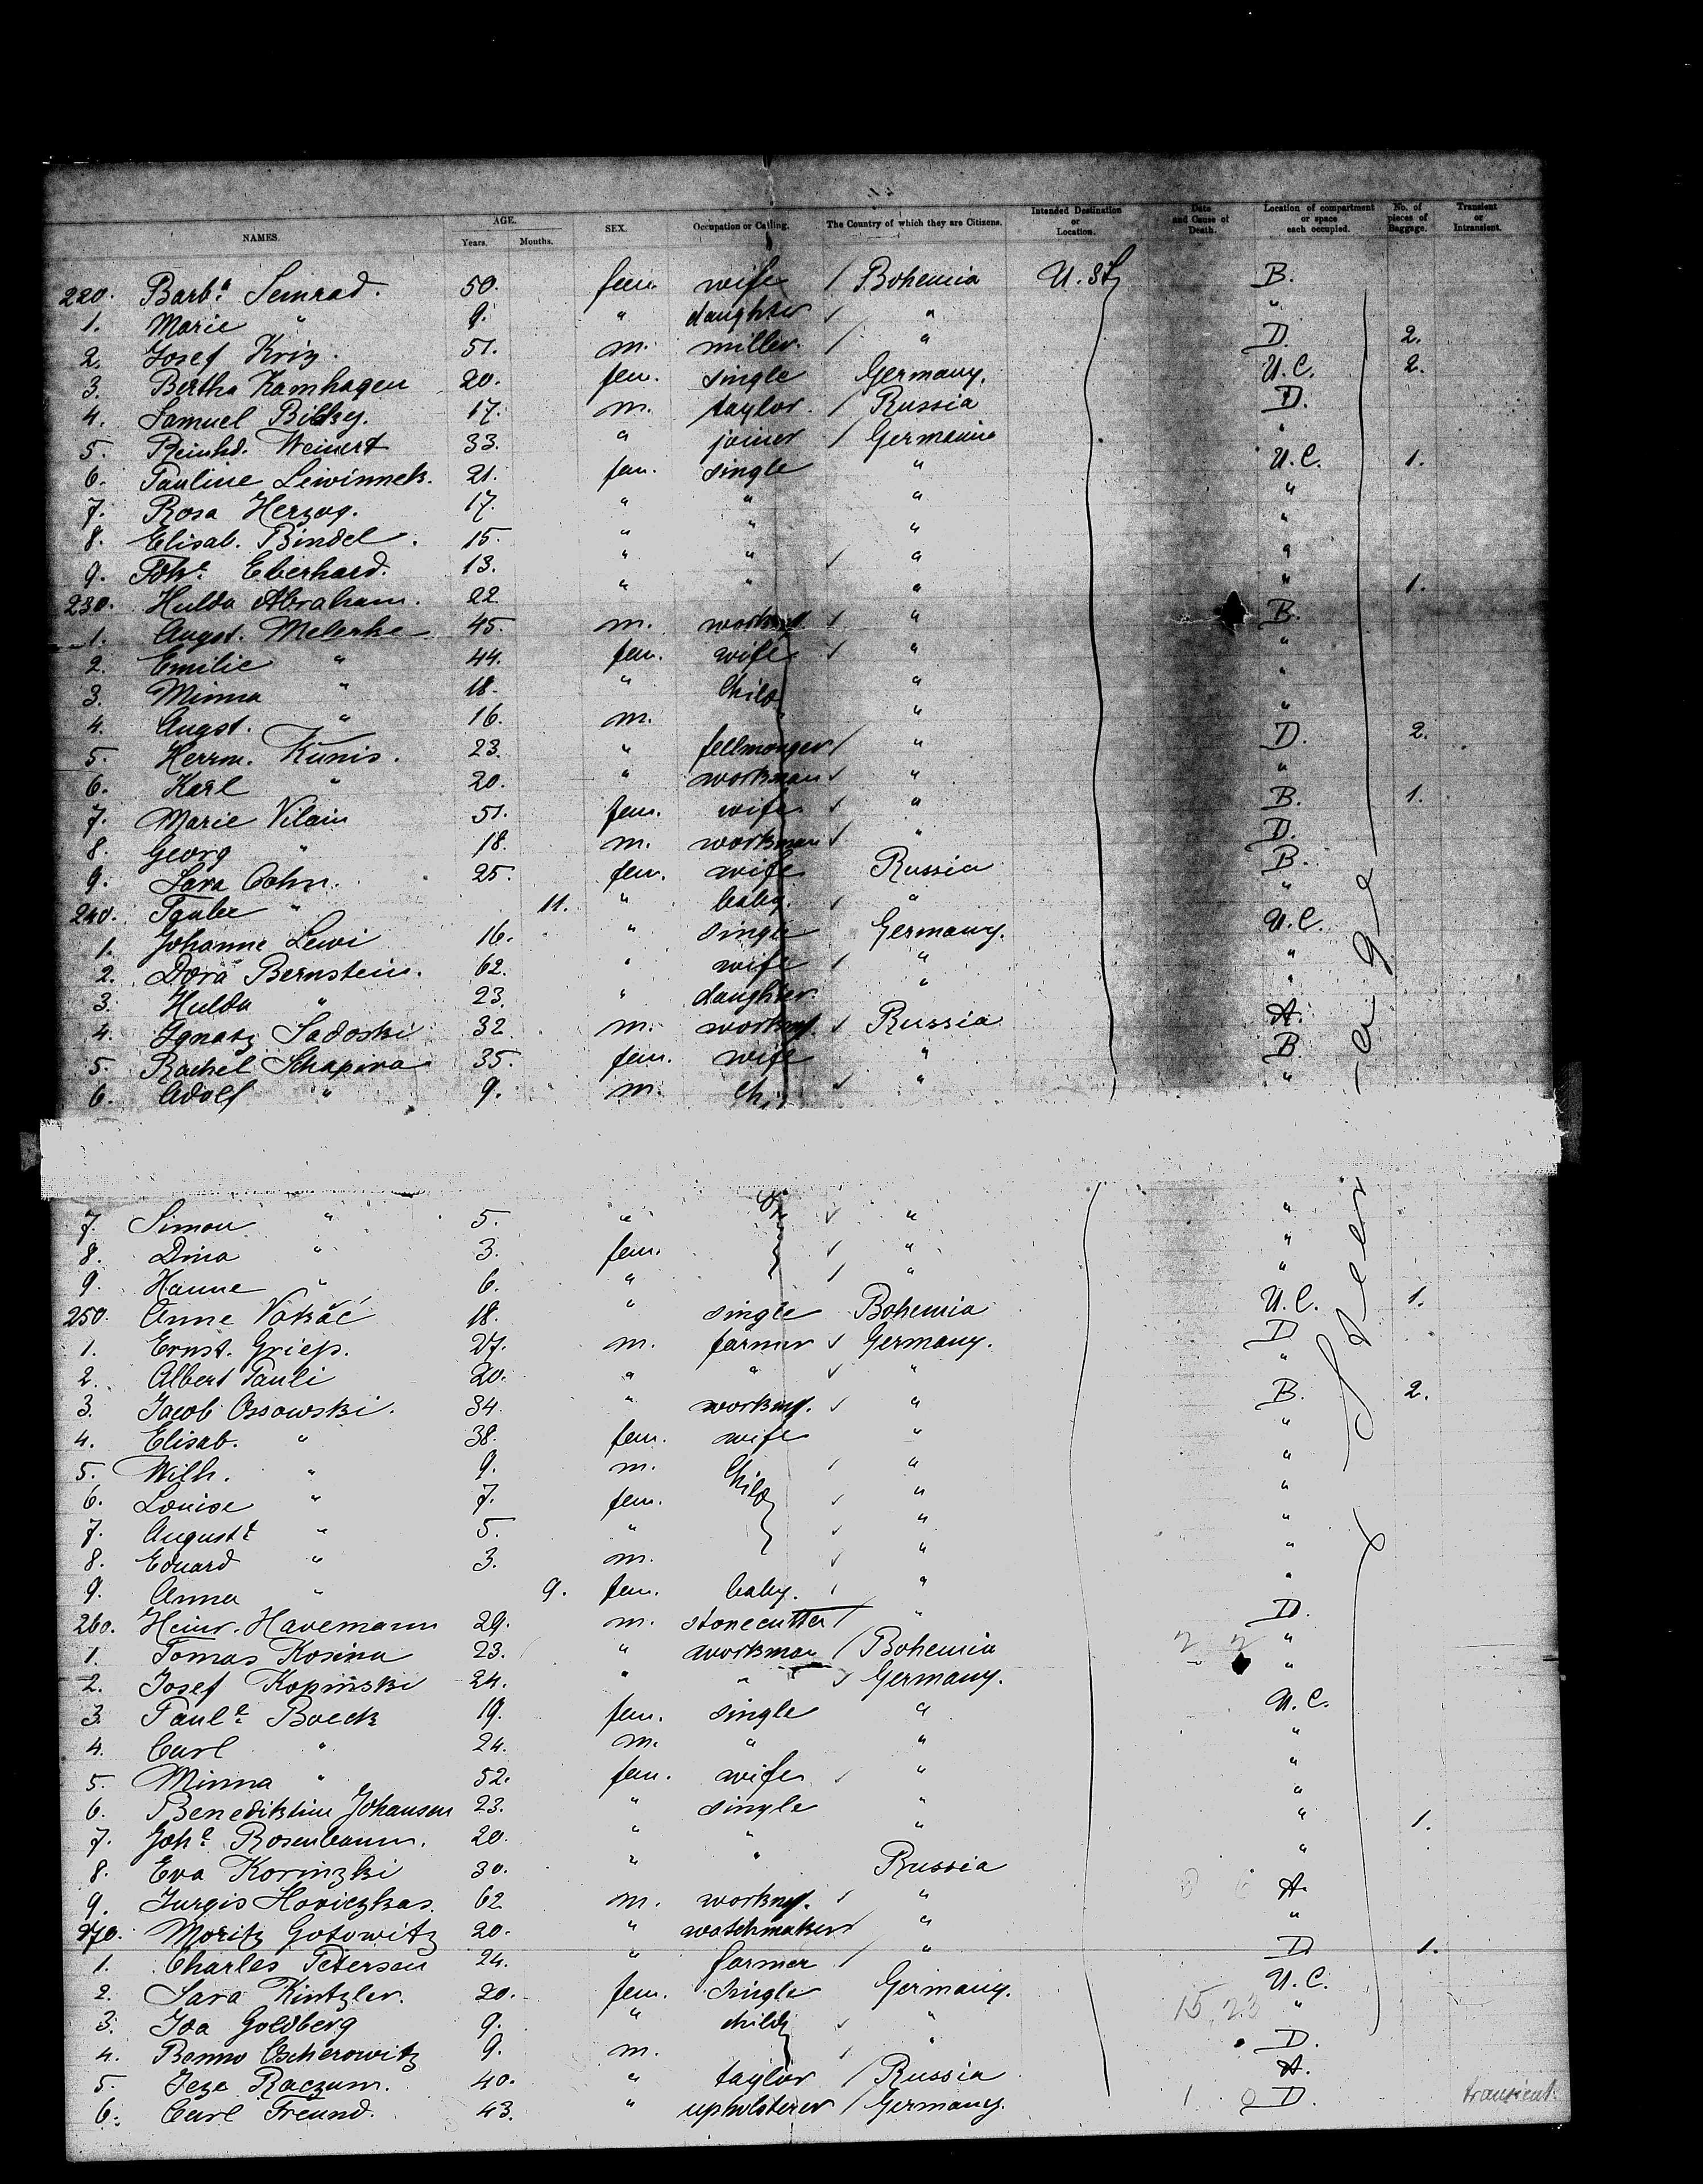 NAMES. AGE. Years. Months. SEX. Occupation or Calling. The Country of which they are Citizens. Intended Destination or Location. Date and Cause of Death. Location of compartment or space each occupied. No. of pieces of Baggage. Transient or Intransient.
220. Barbª Semrad. 50. fem. wife / Bohemia U. St. B.
1. Marie " 9. " daughter ✓ " "
2. Josef Kriz. 51. m. miller. / " D. 2.
3. Bertha Kamhagen 20. fem. single Germany. U.C. 2.
4. Samuel 17. m. taylor. / Russia D.
5. Reinhd. Weinert 33. " joiner / Germanie "
6. Pauline Lewinnek. 21. fem. single " U.C. 1.
7. Rosa Herzog. 17. " " " "
8. Elisab. Bindel. 15. " " " "
9. Johª Eberhard. 13. " " ✓ " "
230. Hulda Abraham. 22 " " " " 1.
1. Augst. Melerke 45. m. ✓ " B.
2. Emilie " 44. fem. wife ✓ " "
3. Minna " 18. " Child " "
4. Augst. " 16. m. " " "
5. Herrm. Kunis. 23. " fellmonger / " D. 2.
6. Karl " 20. " workman ✓ " "
7. Marie Vilain 51. fem. wife ✓ " B. 1.
8. Georg " 18. m. workman ✓ " D.
9. Sara Cohn. 25. fem. wife Russia B.
240. Taube " 11. " baby. ✓ " "
1. Johanne Lewi 16. " single Germany. U.C.
2. Dora Bernstein. 62. " wife ✓ " "
3. Hulda " 23. " daughter. " "
4. Ignatz Sadoski 32 m. workmg. ✓ Russia A.
5. Rachel Schapira 35. fem. wife " B.
6. Adolf " 9. m. Ch. ✓ " "
7. Simon " 5. " ✓ " "
8. Dina " 3. fem. ✓ " "
9. Hanne " 6. " / " "
250. Anne Vokáč 18. " single Bohemia U.C. 1.
1. Ernst. Grieps. 27. m. farmer ✓ Germany. D
2. Albert Pauli 20. " " ✓ " "
3. Jacob Ossowski. 34. " workmg. ✓ " B. 2.
4. Elisab. " 38. fem. wife " "
5. Wilh. " 9. m. Child / " "
6. Louise " 7. fem. ✓ " "
7. Augustᵉ " 5. " ✓ " "
8. Eduard " 3. m. ✓ " "
9. Anna " 9. fem. baby. / " "
260. Heinr. Havemann 29. m. stonecutter / " D.
1. Tomas Kosina 23. " workman / Bohemia "
2. Josef Kopinski 24. " " ✓ Germany. "
3. Paulᵉ Boeck 19. fem. single " U.C.
4. Carl " 24. m. " " "
5. Minna " 52. fem. wife ✓ " "
6. Benediktine Johansen 23. " single " "
7. Johᵉ Rosenbaum. 20. " " " " 1.
8. Eva Korinzki 30. " " Russia "
9. Jurgis Hoviczkas. 62 m. workmg. ✓ " A.
270. Moritz Gotowitz 20. " watchmaker / " "
1. Charles Peterson 24. " farmer / " D 1.
2. Sara Kintzler. 20. fem. single Germany. U.C.
3. Ida Goldberg 9. " child ✓ " 15, 23 "
4. Benno Ascherowitz 9. m. ✓ " D.
5. Jeze Raczum. 40. " taylor / Russia A.
6. Carl Freund. 43. " upholsterer / Germany. D. transient.
Steerage